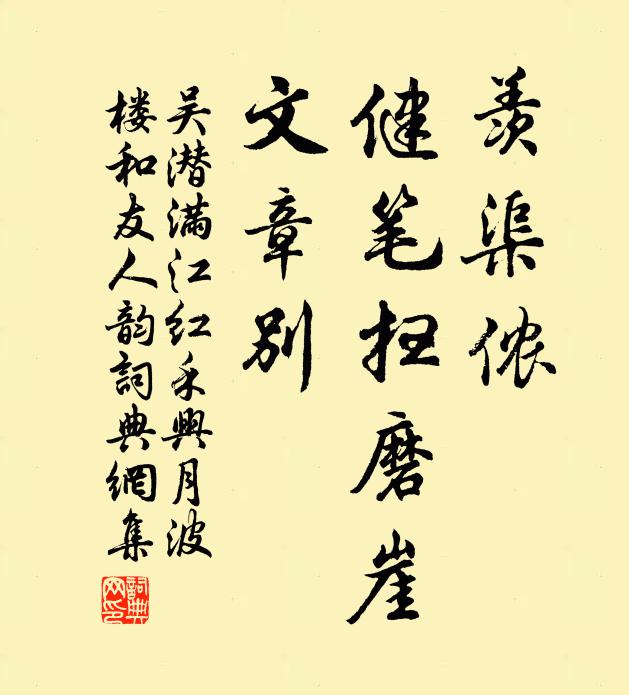 羡渠侬
健笔扫磨崖
文章别
吴潜满江红禾興月波
楼和友人韵詞典網集
詞典
网印